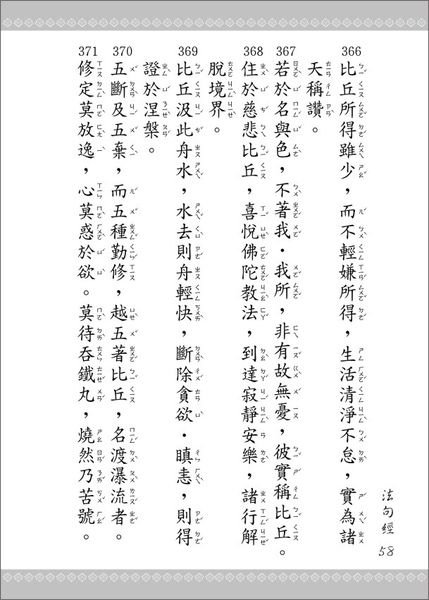 366
比丘所得雖少，而不輕嫌所得，生活清淨不怠，實為諸
天稱讚。
367
若於名與色，不著我．我所，非有故無憂，彼實稱比丘。
368
住於慈悲比丘，喜悅佛陀教法，到達寂靜安樂，諸行解
脫境界。
369
比丘汲此舟水，水去則舟輕快，斷除貪欲．瞋恚，則得
證於涅槃。
370
五斷及五棄，而五種勤修，越五著比丘，名渡瀑流者。
371
修定莫放逸，心莫惑於欲。莫待吞鐵丸，燒然乃苦號。
法句經
58